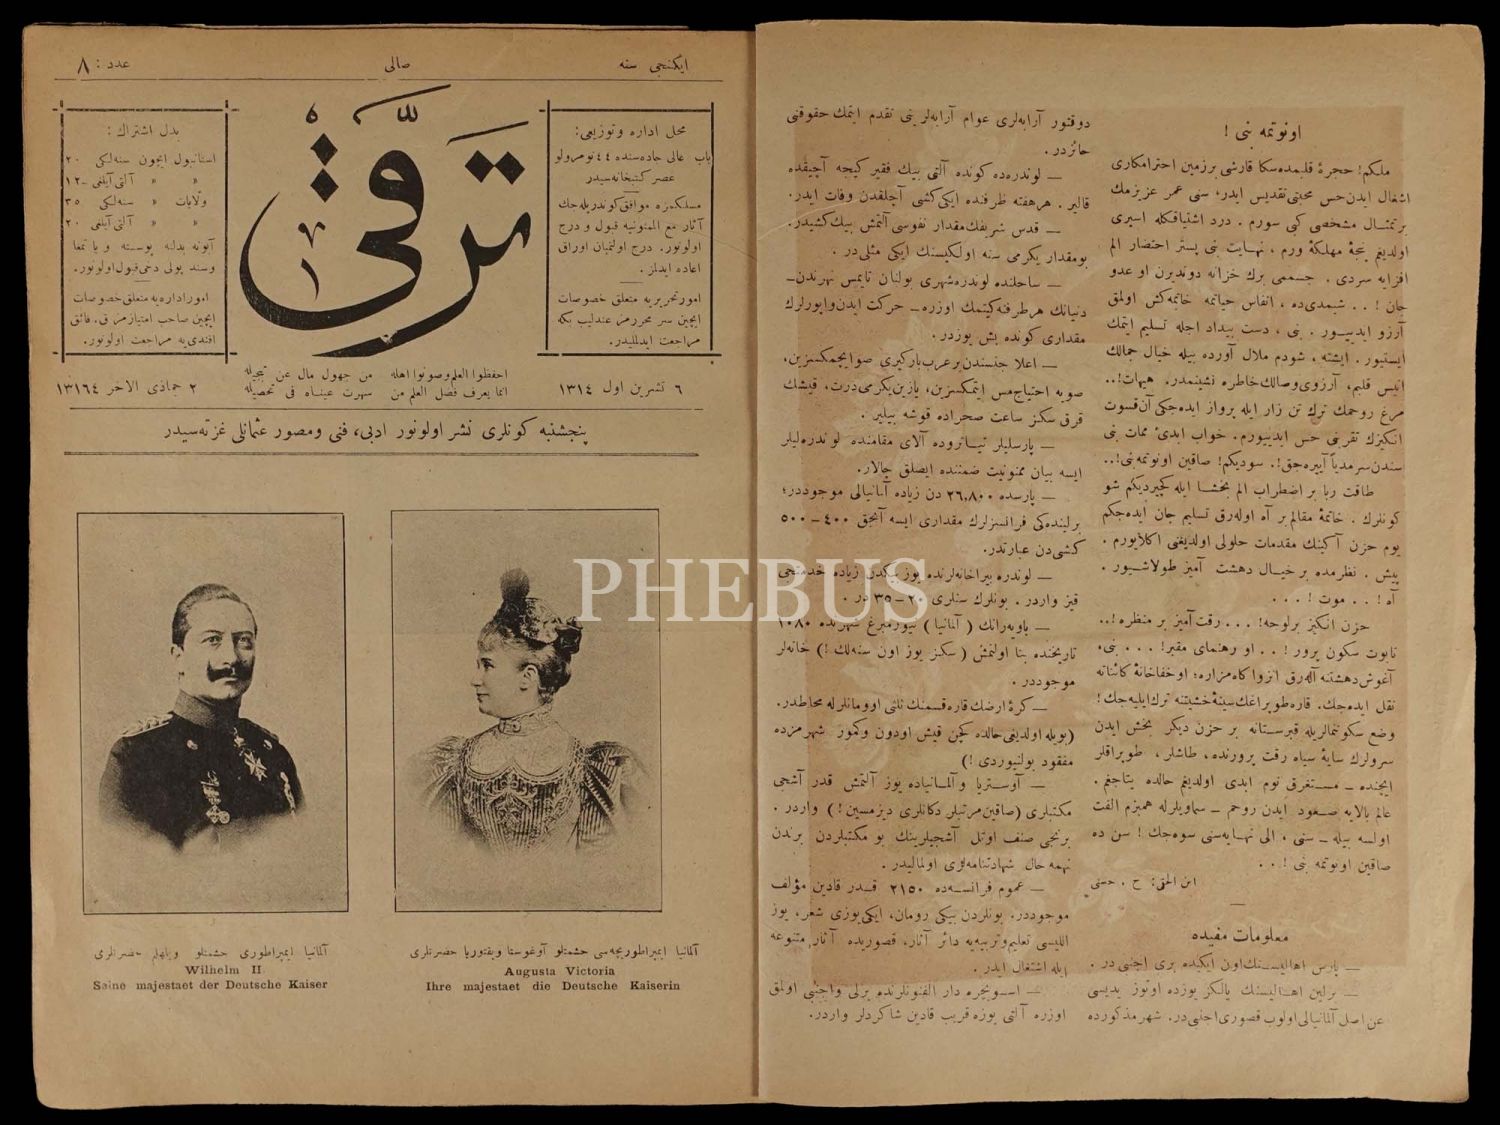 ایكنجی سنه
صالی
عدد : ٨
محل اداره و توزیعی :
باب عالی جاده‌سنده ٤٤ نومرولو
عصر كتبخانه‌سیدر
مسلكمزه موافق كوندریله‌جك
آثار مع الممنونیه قبول و درج
اولونور. درج اولنمیان اوراق
اعاده ایدلمز .
امور تحریریه متعلق خصوصات
ایچین سر محررمز عندلیب بكه
مراجعت ایدلملیدر.
ترقّی
بدل اشتراك :
استانبول ایچون سنه‌لكی ٢٠
» » آلتی آیلغی ١٢
ولایات » سنه‌لكی ٣٥
» » آلتی آیلغی ٢٠
آبونه بدلنه پوسته و یا تمغا
وسند پولی دخی قبول اولونور.
امور اداره‌یه متعلق خصوصات
ایچین صاحب امتیازمز ق. فائق
افندی‌یه مراجعت اولونور.
٦ تشرین اول ١٣١٤
احفظوا العلم وصونوا اهله من جهول مال عن تبجیله
انما یعرف فضل العلم من سهرت عیناه فی تحصیله
٢ جماذی الاخر ١٣١٦٤
پنجشنبه كونلری نشر اولونور ادبی، فنی و مصور عثمانلی غزته‌سیدر
آلمانیا ایمپراطوری حشمتلو ویلهلم حضرتلری
Wilhelm II
Seine majestaet der Deutsche Kaiser
آلمانیا ایمپراطوریچه‌سی حشمتلو آوغوستا ویقتوریا حضرتلری
Augusta Victoria
Ihre majestaet die Deutsche Kaiserin
اونوتمه بنی !
ملكم! حجرهٔ قلبمده سكا قارشی برزمین احترامكاری
اشغال ایدن حس محبتی تقدیس ایدر، سنی عمر عزیزمك
برتمثال مشخصی كبی سورم . درد اشتیاقكله اسیری
اولدیغم پنجهٔ مهلكهٔ ورم ، نهایت بنی بستر احتضار الم
افزایه سردی . جسممی برك خزانه دوندیرن او عدو
جان ! . . شیمدی‌ده ، انفاس حیاتمه خاتمه‌كش اولمق
آرزو ایدییور . بنی ، دست بیداد اجله تسلیم ایتمك
ایستیور . ایشته ، شودم ملال آورده بیله خیال جمالك
انیس قلبم، آرزوی وصالك خاطره نشینمدر. هیهات!..
مرغ روحمك ترك تن زار ایله پرواز ایده‌جكی آن قسوت
انكیزك تقربنی حس ایدییورم. خواب ابدیٔ ممات بنی
سندن سرمدیاً آییره‌جق!. سودیكم! صاقین اونوتمه بنی!..
طاقت ربا بر اضطراب الم بخشا ایله كچیردیكم شو
كونلرك . خاتمهٔ مقالم بر آه اوله‌رق تسلیم جان ایده‌جكم
یوم حزن آكینك مقدمات حلولی اولدیغنی اكلایورم .
پیش . نظرمده بر خیال دهشت آمیز طولاشیور .
آه ! . . موت ! . . .
حزن انكیز بر لوحه! . . . رقت آمیز بر منظره !..
تابوت سكون پرور ! . . او رهنمای مقبر! . . . بنی،
آغوش دهشتنه آله‌رق انزوا كاه مزاره؛ او خفاخانهٔ كائناته
نقل ایده‌جك. قاره طوپراغك سینهٔ خشیتنه ترك ایلیه‌جك!
وضع سكوتنمالریله قبرستانه بر حزن دیكر بخش ایدن
سرولرك سایهٔ سیاه رقت پرورنده ، طاشلر ، طوپراقلر
ایچنده ـ مستغرق نوم ابدی اولدیغم حالده یتاجغم .
عالم بالایه صعود ایدن روحم ـ سماویلرله همبزم الفت
اولسه بیله ـ سنی ، الی نهایه سنی سوه‌جك ! سن ده
صاقین اونوتمه بنی ! . .
ابن الحقی: ح . حسنی
معلومات مفیده
ـ پارس اهالیسنك اون ایكیده بری اجنبی در .
ـ برلین اهالیسنك یالكز یوزده اوتوز یدیسی
عن اصل آلمانیالی اولوب قصوری اجنبی در. شهر مذكورده
دوقتور آرابه‌لری عوام آرابه‌لرینی تقدم ایتمك حقوقنی
حائزدر .
ـ لوندره‌ده كونده آلتی بیك فقیر كیجه آچیقده
قالیر . هر هفته ظرفنده ایكی كشی آچلقدن وفات ایدر.
ـ قدس شریفك مقدار نفوسی آلتمش بیك كشیدر.
بو مقدار یكرمی سنه اولكیسنك ایكی مثلی در .
ـ ساحلنده لوندره شهری بولنان تایمس نهرندن ـ
دنیانك هر طرفنه كیتمك اوزره ـ حركت ایدن واپورلرك
مقداری كونده بش یوزدر.
ـ اعلا جنسندن بر عرب باركیری صو ایچمكسزین،
صویه احتیاج مس ایتمكسزین، یازین یكرمی درت، قیشك
قرق سكز ساعت صحراده قوشه بیلیر .
ـ پارسلیلر تیاتروده آلای مقامنده لوندره‌لیلر
ایسه بیان ممنونیت ضمننده ایصلق چالار.
ـ پارسده ٢٦,٨٠٠ دن زیاده آلمانیالی موجوددر؛
برلینده‌كی فرانسزلرك مقداری ایسه آنجق ٤٠٠ ـ ٥٠٠
كشی‌دن عبارتدر.
ـ لوندره بیراخانه‌لرنده یوز بیكدن زیاده خدمتجی
قیز واردر . بونلرك سنلری ٢٠ ـ ٣٥ در .
ـ باویه‌رانك ( آلمانیا ) نیورمبرغ شهرنده ١٠٨٠
تاریخنده بنا اولنمش ( سكز یوز اون سنه‌لك !) خانه‌لر
موجوددر .
ـ كرهٔ ارضك قاره قسمنك ثلثی اورمانلرله محاطدر.
(بویله اولدیغی حالده كچن قیش اودون و كومور شهرمزده
مفقود بولنیوردی !)
ـ آوستریا و آلمانیاده یوز آلتمش قدر آشجی
مكتبلری (صاقین مرتبلر دكانلری دیزمسین !) واردر .
برنجی صنف اوتل آشجیلرینك بو مكتبلردن برندن
بهمه حال شهادتنامه‌لری اولمالیدر .
ـ عموم فرانسه‌ده ٢١٥٠ قدر قادین مؤلف
موجوددر. بونلردن بیكی رومان، ایكی یوزی شعر، یوز
اللیسی تعلیم و تربیه‌یه دائر آثار، قصوری‌ده آثار متنوعه
ایله اشتغال ایدر .
ـ اسویچره دار الفنونلرنده یرلی و اجنبی اولمق
اوزره آلتی یوزه قریب قادین شاكردلر واردر.
PHEBUS